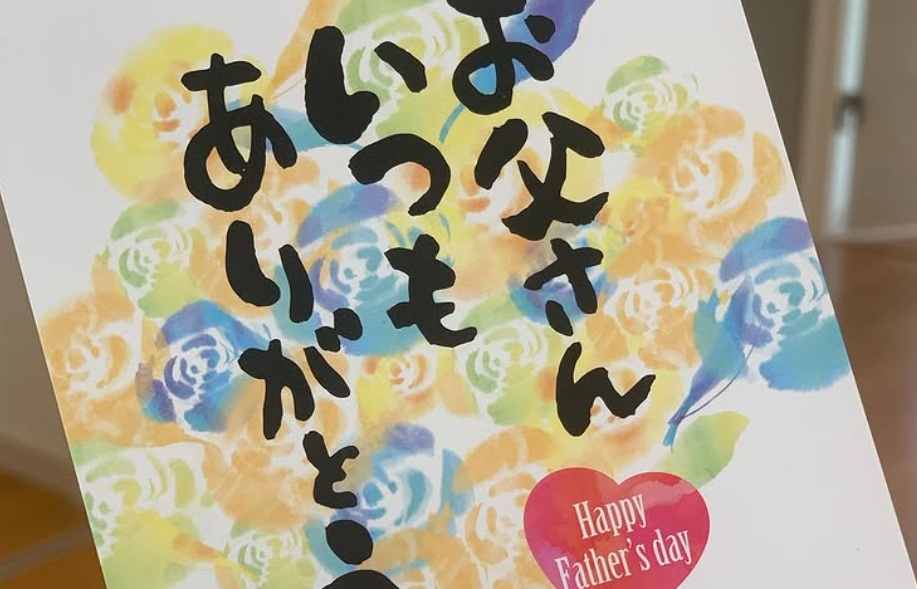 お父さん
いつも
ありがとう
Happy
Father's day